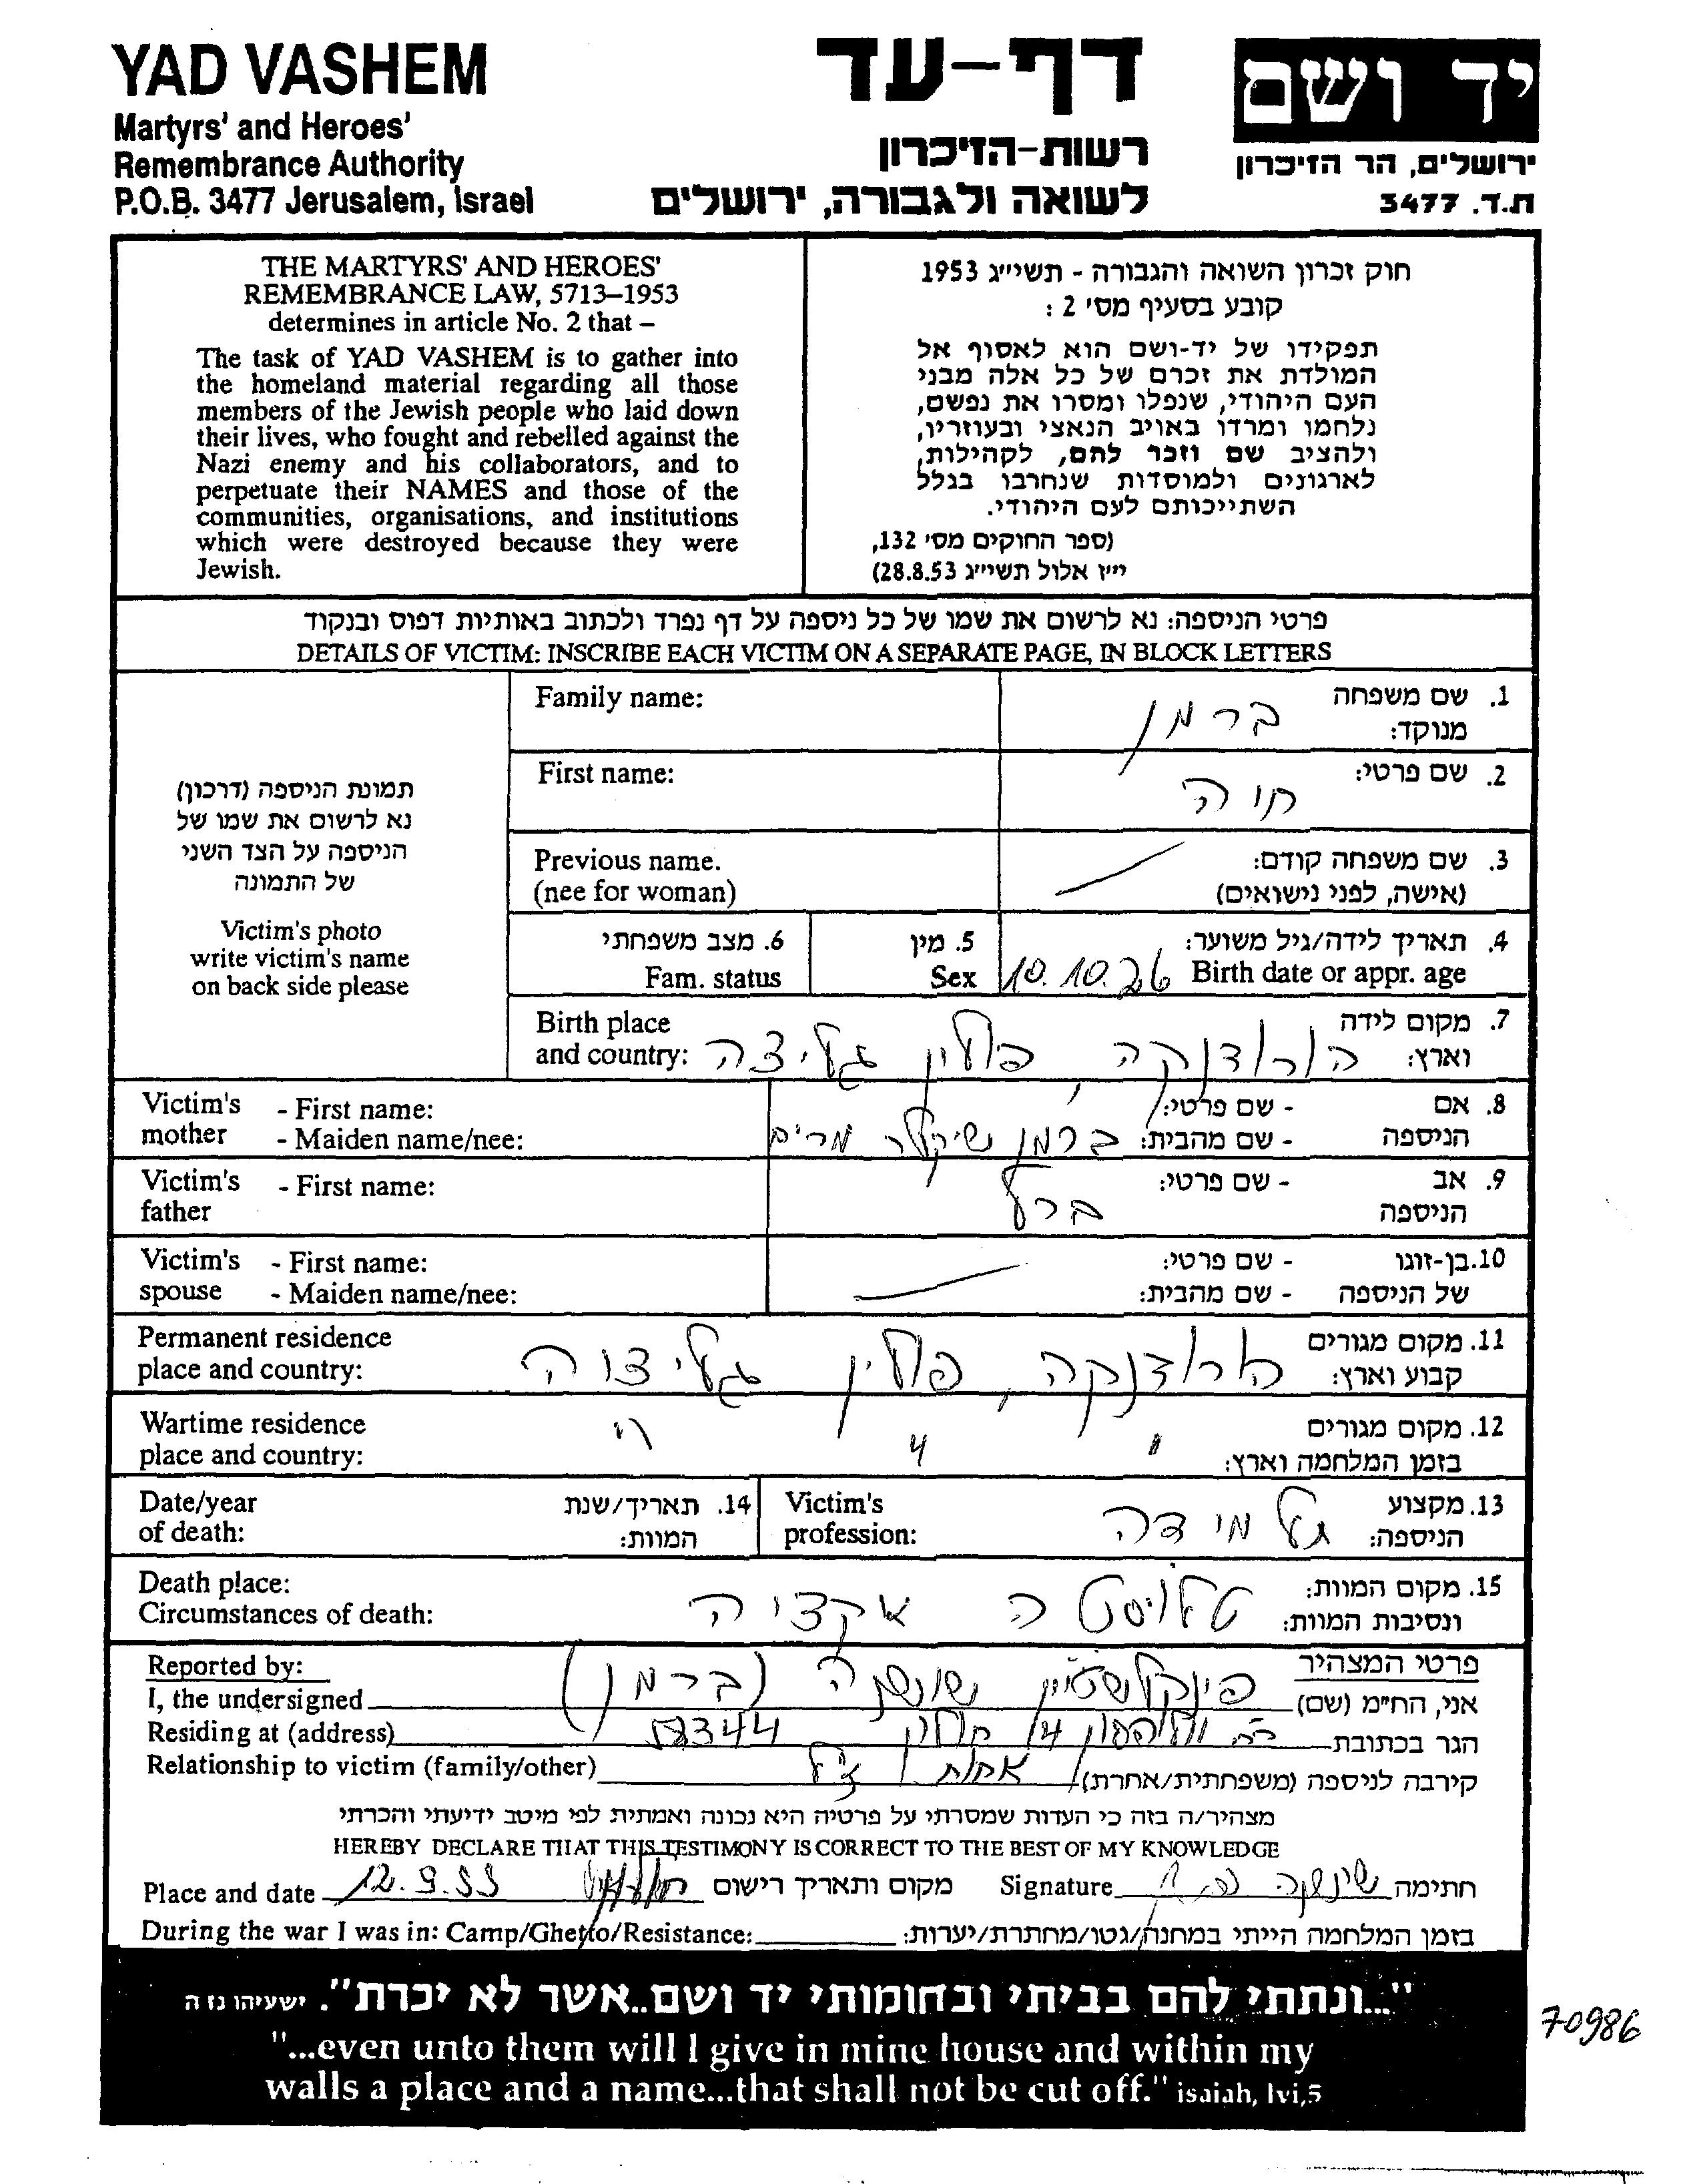 YAD VASHEM
Martyrs' and Heroes'
Remembrance Authority
P.O.B. 3477 Jerusalem, Israel
דף-עד
רשות-הזיכרון
לשואה ולגבורה, ירושלים
יד ושם
ירושלים, הר הזיכרון
ת.ד. 3477
THE MARTYRS' AND HEROES'
REMEMBRANCE LAW, 5713–1953
determines in article No. 2 that –
The task of YAD VASHEM is to gather into
the homeland material regarding all those
members of the Jewish people who laid down
their lives, who fought and rebelled against the
Nazi enemy and his collaborators, and to
perpetuate their NAMES and those of the
communities, organisations, and institutions
which were destroyed because they were
Jewish.
חוק זכרון השואה והגבורה - תשי״ג 1953
קובע בסעיף מס׳ 2 :
תפקידו של יד-ושם הוא לאסוף אל
המולדת את זכרם של כל אלה מבני
העם היהודי, שנפלו ומסרו את נפשם,
נלחמו ומרדו באויב הנאצי ובעוזריו,
ולהציב שם וזכר להם, לקהילות,
לארגונים ולמוסדות שנחרבו בגלל
השתייכותם לעם היהודי.
(ספר החוקים מס׳ 132,
י״ז אלול תשי״ג 28.8.53)
פרטי הניספה: נא לרשום את שמו של כל ניספה על דף נפרד ולכתוב באותיות דפוס ובנקוד
DETAILS OF VICTIM: INSCRIBE EACH VICTIM ON A SEPARATE PAGE, IN BLOCK LETTERS
תמונת הניספה (דרכון)
נא לרשום את שמו של
הניספה על הצד השני
של התמונה
Victim's photo
write victim's name
on back side please
Family name: ברמן 1. שם משפחה
מנוקד:
First name: חוה 2. שם פרטי:
Previous name. 3. שם משפחה קודם:
(nee for woman) (אישה, לפני נישואים)
6. מצב משפחתי 5. מין 4. תאריך לידה/גיל משוער:
Fam. status Sex 10.10.26 Birth date or appr. age
Birth place 7. מקום לידה
and country: הורודנקה, פולין גליציה וארץ:
Victim's - First name: - שם פרטי: 8. אם
mother - Maiden name/nee: ברמן מרים - שם מהבית: הניספה
Victim's - First name: - שם פרטי: 9. אב
father ברל הניספה
Victim's - First name: - שם פרטי: 10. בן-זוגו
spouse - Maiden name/nee: - שם מהבית: של הניספה
Permanent residence 11. מקום מגורים
place and country: הורודנקה, פולין גליציה קבוע וארץ:
Wartime residence 12. מקום מגורים
place and country: " " " בזמן המלחמה וארץ:
Date/year 14. תאריך/שנת
of death: המוות:
Victim's 13. מקצוע
profession: תלמידה הניספה:
Death place: 15. מקום המוות:
Circumstances of death: אקציה ונסיבות המוות:
Reported by: פרטי המצהיר
I, the undersigned פינקלשטיין שושנה (ברמן) אני, הח״מ (שם)
Residing at (address) 14 חולון 58344 הגר בכתובת
Relationship to victim (family/other) אחות קירבה לניספה (משפחתית/אחרת)
מצהיר/ה בזה כי העדות שמסרתי על פרטיה היא נכונה ואמתית לפי מיטב ידיעתי והכרתי
HEREBY DECLARE THAT THIS TESTIMONY IS CORRECT TO THE BEST OF MY KNOWLEDGE
Place and date 12.9.99 מקום ותאריך רישום Signature שושנה חתימה
During the war I was in: Camp/Ghetto/Resistance: בזמן המלחמה הייתי במחנה/גטו/מחתרת/יערות:
"...ונתתי להם בביתי ובחומותי יד ושם..אשר לא יכרת". ישעיהו נו ה
"...even unto them will I give in mine house and within my
walls a place and a name...that shall not be cut off." isaiah, lvi,5
70986